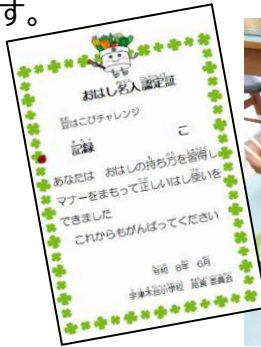 す。
おはし名人認定証
豆はこびチャレンジ
記録 こ
あなたは おはしの持ち方を習得し
マナーをまもって正しいはし使いを
できました
これからもがんばってください
令和 6年 6月
宇津木台小学校 給食委員会